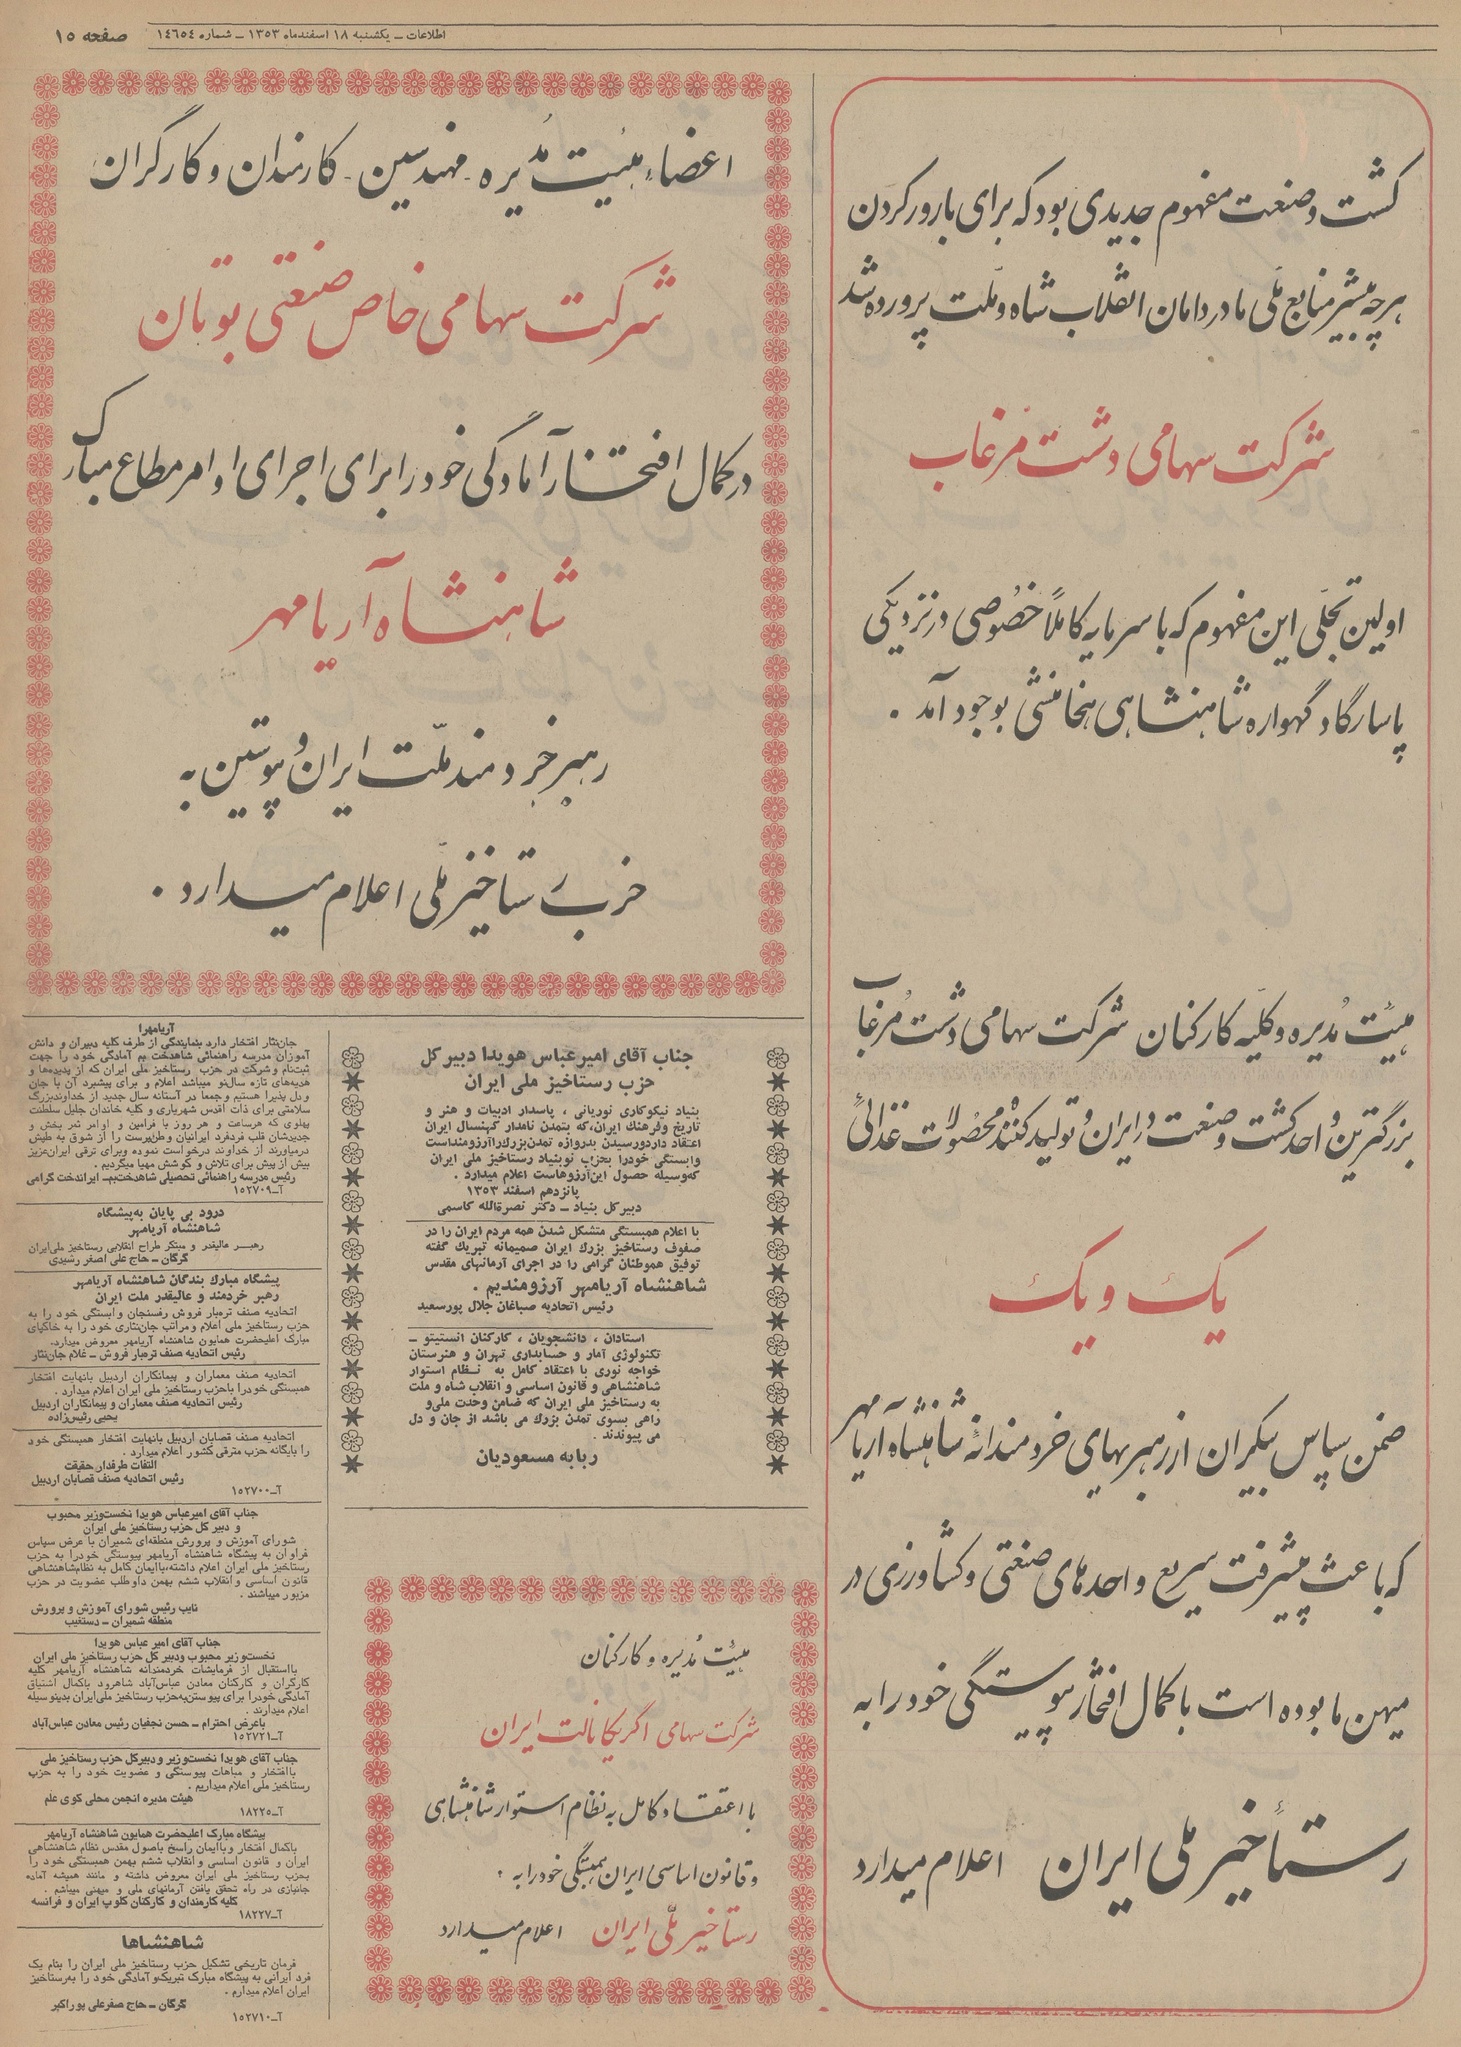 اطلاعات – یکشنبه ۱۸ اسفندماه ۱۳۵۳ – شماره ۱۴۶۵۴
صفحه ۱۵
کشت و صنعت مفهوم جدیدی بود که برای بارور کردن
هرچه بیشتر منابع ملی ما در دامان انقلاب شاه و ملت پرورده شد
شرکت سهامی دشت مرغاب
اولین تجلّی این مفهوم که با سرمایه کاملاً خصوصی در نزدیکی
پاسارگاد گهواره شاهنشاهی هخامنشی بوجود آمد .
هیئت مُدیره و کلیّه کارکنان شرکت سهامی دشت مُرغاب
بزرگترین واحد کشت و صنعت در ایران و تولید کنندهٔ محصولات غذائی
یک و یک
ضمن سپاس بیکران از رهبریهای خردمندانهٔ شاهنشاه آریامهر
که باعث پیشرفت سریع واحدهای صنعتی و کشاورزی در
میهن ما بوده است با کمال افتخار پیوستگی خود را به
رستاخیز ملی ایران اعلام میدارد
اعضاء هیئت مُدیره - مهندسین - کارمندان و کارگران
شرکت سهامی خاص صنعتی بوتان
در کمال افتخار آمادگی خود را برای اجرای اوامر مطاع مبارک
شاهنشاه آریامهر
رهبر خردمند ملّت ایران و پیوستن به
حزب رستاخیز ملّی اعلام میدارد .
جناب آقای امیر عباس هویدا دبیر کل
حزب رستاخیز ملی ایران
بنیاد نیکوکاری نوریانی ، پاسدار ادبیات و هنر و
تاریخ و فرهنگ ایران، که بتمدن نامدار کهنسال ایران
اعتقاد دارد و رسیدن بدروازه تمدن بزرگ را آرزومند است
وابستگی خود را بحزب نوبنیاد رستاخیز ملی ایران
که وسیله حصول این آرزوهاست اعلام میدارد .
پانزدهم اسفند ۱۳۵۳
دبیر کل بنیاد – دکتر نصرةالله کاسمی
با اعلام همبستگی متشکل شدن همه مردم ایران را در
صفوف رستاخیز بزرگ ایران صمیمانه تبریک گفته
توفیق هموطنان گرامی را در اجرای آرمانهای مقدس
شاهنشاه آریامهر آرزومندیم .
رئیس اتحادیه صباغان جلال پورسعید
استادان ، دانشجویان ، کارکنان انستیتو –
تکنولوژی آمار و حسابداری تهران و هنرستان
خواجه نوری با اعتقاد کامل به نظام استوار
شاهنشاهی و قانون اساسی و انقلاب شاه و ملت
به رستاخیز ملی ایران که ضامن وحدت ملی و
راهی بسوی تمدن بزرگ می باشد از جان و دل
می پیوندند .
ربابه مسعودیان
هیئت مُدیره و کارکنان
شرکت سهامی اگریکا نالت ایران
با اعتقاد کامل به نظام استوار شاهنشاهی
و قانون اساسی ایران همبستگی خود را به
رستاخیز ملّی ایران اعلام میدارد
آریامهرا
جان‌نثار افتخار دارد بنمایندگی از طرف کلیه دبیران و دانش
آموزان مدرسه راهنمائی شاهدخت بم آمادگی خود را جهت
ثبت‌نام و شرکت در حزب رستاخیز ملی ایران که از پدیده‌ها و
هدیه‌های تازه سال‌نو میباشد اعلام و برای پیشبرد آن با جان
و دل پذیرا هستیم و جمعا در آستانه سال جدید از خداوند بزرگ
سلامتی برای ذات اقدس شهریاری و کلیه خاندان جلیل سلطنت
پهلوی که هرساعت و هر روز با فرامین و اوامر ثمر بخش و
جدیدشان قلب فردفرد ایرانیان وطن‌پرست را از شوق به طپش
درمیاورند از خداوند درخواست نموده و برای ترقی ایران عزیز
بیش از پیش برای تلاش و کوشش مهیا میگردیم .
رئیس مدرسه راهنمائی تحصیلی شاهدخت بم– ایراندخت گرامی
آ–۱۵۲۷۰۹
درود بی پایان به‌پیشگاه
شاهنشاه آریامهر
رهبر عالیقدر و مبتکر طراح انقلابی رستاخیز ملی ایران
گرگان – حاج علی اصغر رشیدی
پیشگاه مبارک بندگان شاهنشاه آریامهر
رهبر خردمند و عالیقدر ملت ایران
اتحادیه صنف تره‌بار فروش رفسنجان وابستگی خود را به
حزب رستاخیز ملی اعلام و مراتب جان‌نثاری خود را به خاکپای
مبارک اعلیحضرت همایون شاهنشاه آریامهر معروض میدارد.
رئیس اتحادیه صنف تره‌بار فروش – غلام جان‌نثار
اتحادیه صنف معماران و پیمانکاران اردبیل بانهایت افتخار
همبستگی خود را با حزب رستاخیز ملی ایران اعلام میدارد .
رئیس اتحادیه صنف معماران و پیمانکاران اردبیل
یحیی رئیس‌زاده
اتحادیه صنف قصابان اردبیل بانهایت افتخار همبستگی خود
را بایگانه حزب مترقی کشور اعلام میدارد .
التفات طرفدار حقیقت
رئیس اتحادیه صنف قصابان اردبیل
آ–۱۵۲۷۰۰
جناب آقای امیرعباس هویدا نخست‌وزیر محبوب
و دبیر کل حزب رستاخیز ملی ایران
شورای آموزش و پرورش منطقه‌ای شمیران با عرض سپاس
فراوان به پیشگاه شاهنشاه آریامهر پیوستگی خود را به حزب
رستاخیز ملی ایران اعلام داشته، باایمان کامل به نظام شاهنشاهی
قانون اساسی و انقلاب ششم بهمن داوطلب عضویت در حزب
مزبور میباشند .
نایب رئیس شورای آموزش و پرورش
منطقه شمیران – دستغیب
جناب آقای امیر عباس هویدا
نخست‌وزیر محبوب و دبیر کل حزب رستاخیز ملی ایران
بااستقبال از فرمایشات خردمندانه شاهنشاه آریامهر کلیه
کارگران و کارکنان معادن عباس‌آباد شاهرود باکمال اشتیاق
آمادگی خود را برای پیوستن به حزب رستاخیز ملی ایران بدینوسیله
اعلام میدارند .
باعرض احترام – حسن نجفیان رئیس معادن عباس‌آباد
آ–۱۵۲۷۲۱
جناب آقای هویدا نخست‌وزیر و دبیرکل حزب رستاخیز ملی
باافتخار و مباهات پیوستگی و عضویت خود را به حزب
رستاخیز ملی اعلام میداریم .
هیئت مدیره انجمن محلی کوی علم
آ–۱۸۲۲۵
پیشگاه مبارک اعلیحضرت همایون شاهنشاه آریامهر
باکمال افتخار و باایمان راسخ باصول مقدس نظام شاهنشاهی
ایران و قانون اساسی و انقلاب ششم بهمن همبستگی خود را
بحزب رستاخیز ملی ایران معروض داشته و مانند همیشه آماده
جانبازی در راه تحقق یافتن آرمانهای ملی و میهنی میباشم .
کلیه کارمندان و کارکنان کلوپ ایران و فرانسه
آ–۱۸۲۲۷
شاهنشاها
فرمان تاریخی تشکیل حزب رستاخیز ملی ایران را بنام یک
فرد ایرانی به پیشگاه مبارک تبریک و آمادگی خود را به رستاخیز
ایران اعلام میدارم .
گرگان – حاج صفرعلی پوراکبر
آ–۱۵۲۷۱۰